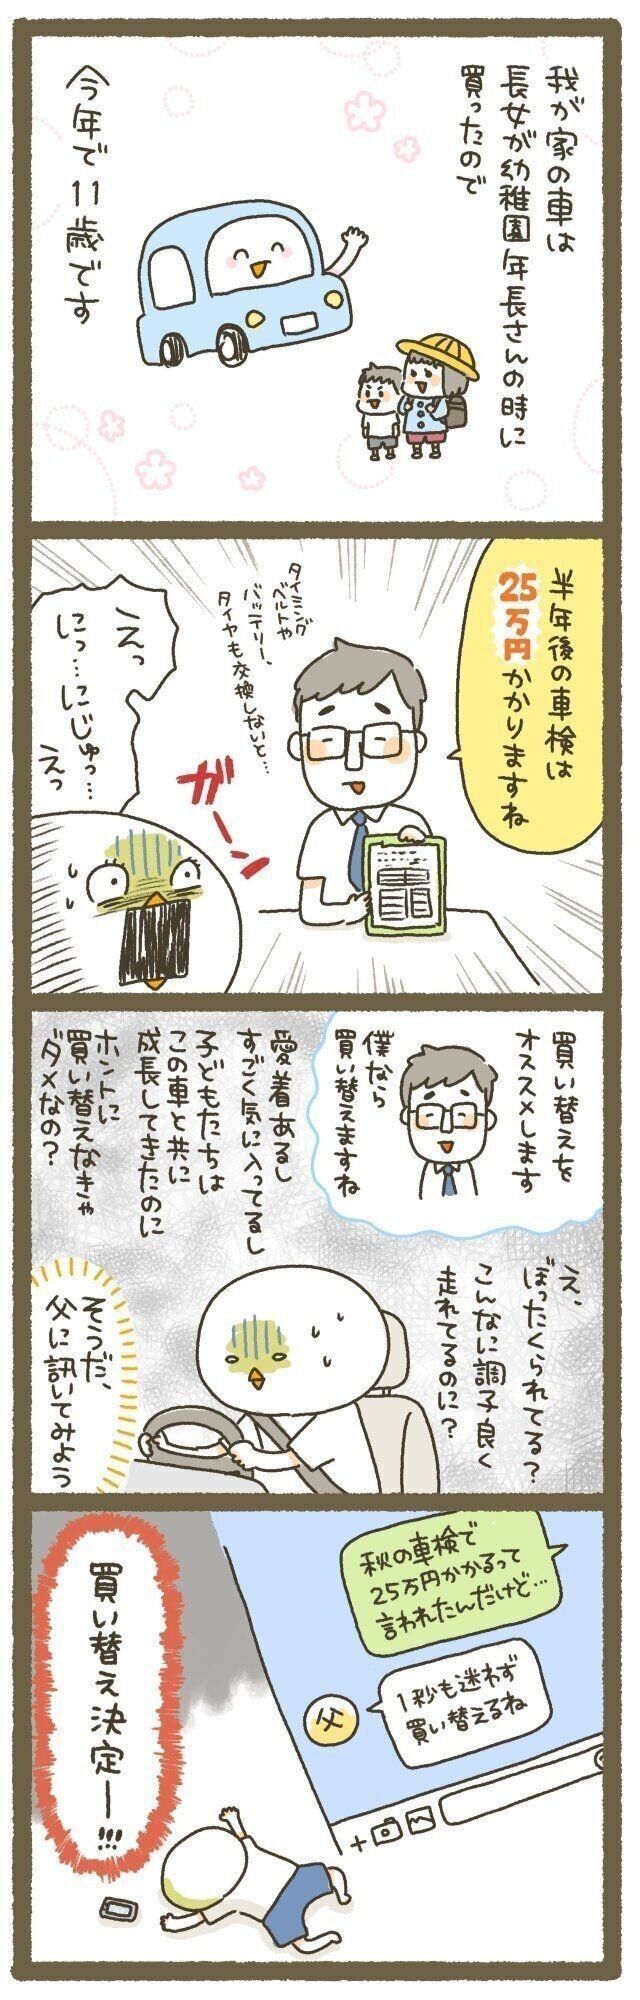 我が家の車は
長女が幼稚園年長さんの時に
買ったので
今年で11歳です
半年後の車検は
25万円かかりますね
タイミング
ベルトや
バッテリー、
タイヤも交換しないと…
ガーン
えっ
にっ…にじゅっ…
えっ
買い替えを
オススメします
僕なら
買い替えますね
え、
ぼったくられてる?
こんなに調子良く
走れてるのに?
愛着あるし
すごく気に入ってるし
子どもたちは
この車と共に
成長してきたのに
ホントに
買い替えなきゃ
ダメなの?
そうだ、
父に訊いてみよう
秋の車検で
25万円かかるって
言われたんだけど…
父
1秒も迷わず
買い替えるね
買い替え決定ー!!!